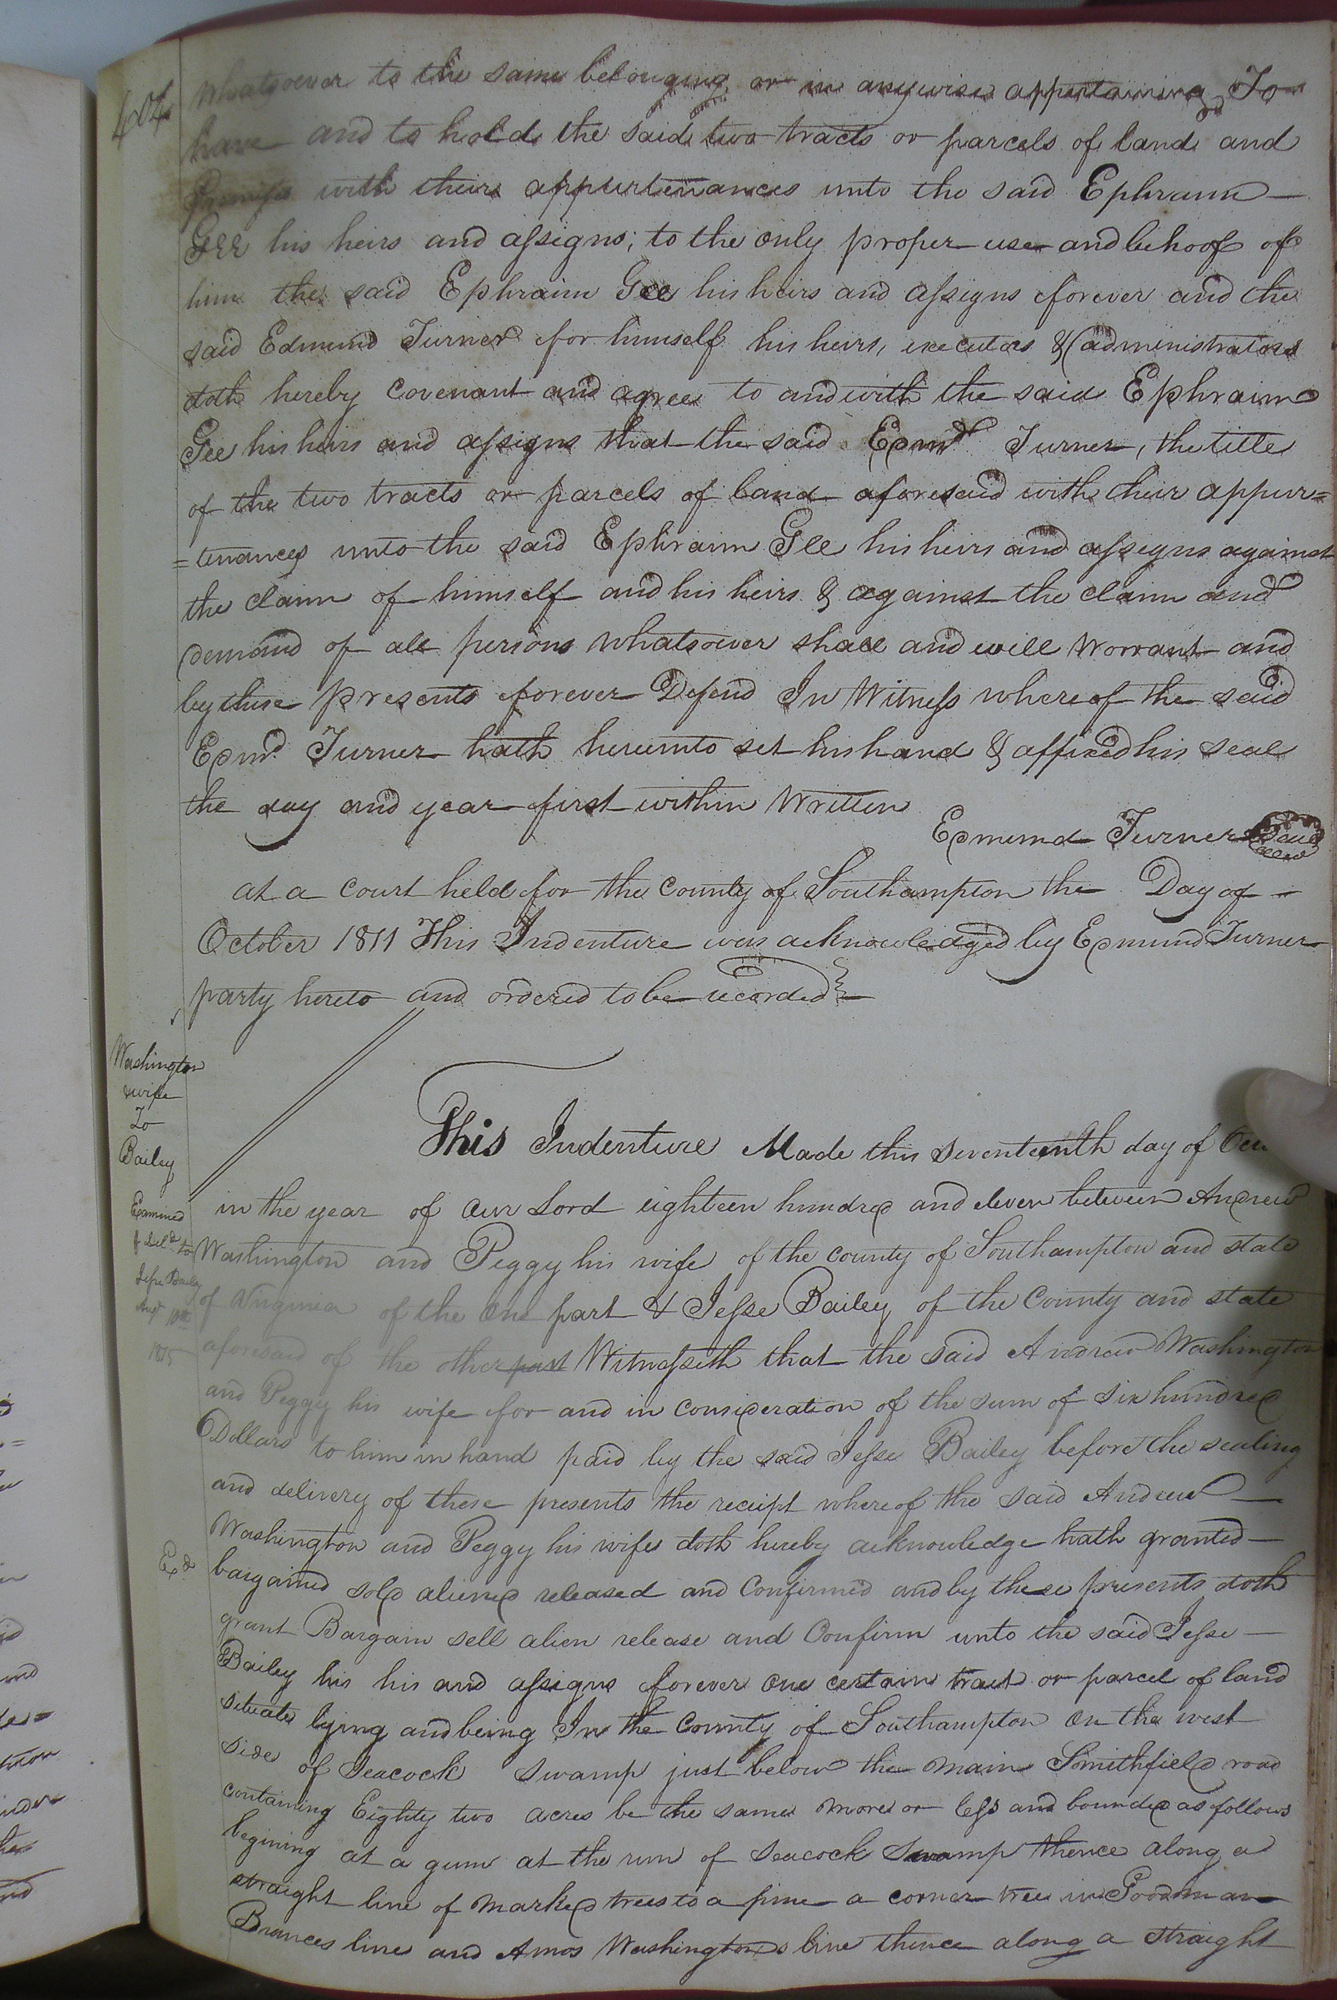 404
whatsoever to the same belonging or in anywise appertaining To
have and to hold the said two tracts or parcels of land and
Premises with their appurtenances unto the said Ephraim
Gee his heirs and assigns; to the only proper use and behoof of
him the said Ephraim Gee his heirs and assigns forever and the
said Edmund Turner for himself his heirs, executors & administrators
doth hereby covenant and agree to and with the said Ephraim
Gee his heirs and assigns that the said Edmd. Turner, the title
of the two tracts or parcels of land aforesaid with their appur=
=tenances unto the said Ephraim Gee his heirs and assigns against
the claim of himself and his heirs & against the claim and
demand of all persons whatsoever shall and will Warrant and
by these presents forever Defend In Witness whereof the said
Edmd. Turner hath hereunto set his hand & affixed his seal
the day and year first within Written
Edmund Turner Seal
at a court held for the county of Southampton the Day of =
October 1811 This Indenture was acknowledged by Edmund Turner
party hereto and ordered to be recorded
Washington
& wife
To
Bailey
Examined
& Deld. to
Jesse Bailey
Augt 10th
1815
Exd
This Indenture Made this seventeenth day of
in the year of our Lord eighteen hundred and eleven between Andrew
Washington and Peggy his wife of the county of Southampton and state
of Virginia of the one part & Jesse Bailey of the County and state
aforesaid of the other part Witnesseth that the said Andrew Washington
and Peggy his wife for and in consideration of the sum of six hundred
Dollars to him in hand paid by the said Jesse Bailey before the sealing
and delivery of these presents the receipt whereof the said Andrew
Washington and Peggy his wife doth hereby acknowledge hath granted
bargained sold aliened released and Confirmed and by these presents doth
grant Bargain sell alien release and Confirm unto the said Jesse
Bailey his his and assigns forever one certain tract or parcel of land
situate lying and being In the County of Southampton on the west
side of Seacock swamp just below the main Smithfield road
containing Eighty two acres be the same more or less and bounded as follows
begining at a gum at the run of Seacock Swamp thence along a
straight line of marked trees to a pine a corner tree in Goodman
Brances line and Amos Washingtons line thence along a straight